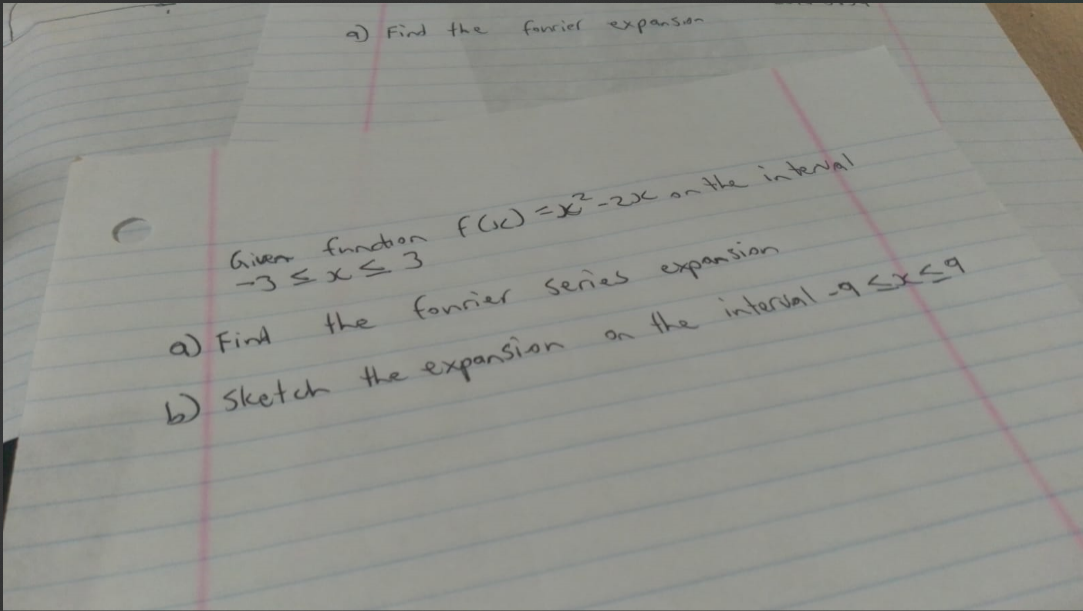 a) Find the fourier expansion
Given function f(x) = x² - 2x on the interval
-3 ≤ x ≤ 3
a) Find the fourier series expansion
b) Sketch the expansion on the interval -9 ≤ x ≤ 9